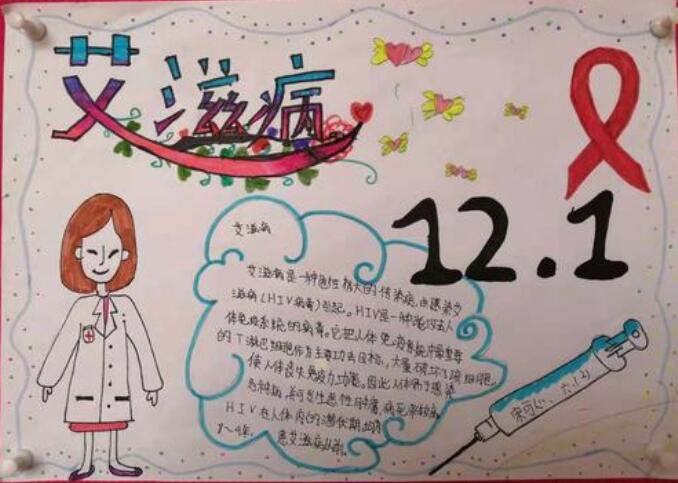 艾滋病
12.1
艾滋病
艾滋病是一种危害性极大的传染病,由感染艾
滋病(HIV病毒)引起。HIV是一种能攻击人
体免疫系统的病毒。它把人体免疫系统中最重要
的T淋巴细胞作为主要攻击目标,大量破坏该细胞,
使人体丧失免疫力功能。因此人体易于感染
各种病,并可发生恶性肿瘤,病死率较高
HIV在人体内的潜伏期
8~9年,患艾滋病以前。